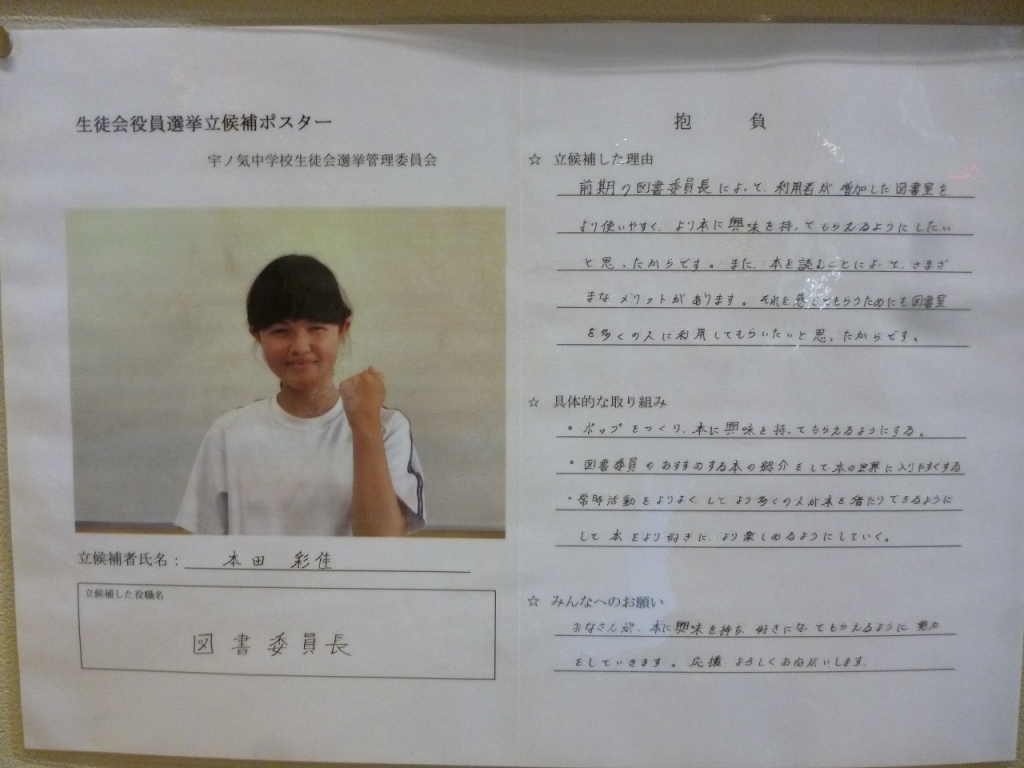 生徒会役員選挙立候補ポスター
宇ノ気中学校生徒会選挙管理委員会
立候補者氏名：本田 彩佳
立候補した役職名
図書委員長
抱 負
☆ 立候補した理由
前期の図書委員長によって、利用者が増加した図書室を
より使いやすく、より本に興味を持ってもらえるようにしたい
と思ったからです。また、本を読むことによって、さまざ
まなメリットがあります。それを感じてもらうためにも図書室
を多くの人に利用してもらいたいと思ったからです。
☆ 具体的な取り組み
・ポップをつくり、本に興味を持ってもらえるようにする。
・図書委員のおすすめする本の紹介をして、本の世界に入りやすくする
・常時活動をよりよくして より多くの人が本を借たりできるように
して、本をより好きに、より楽しめるようにしていく。
☆ みんなへのお願い
みなさんが、本に興味を持ち、好きになってもらえるように 努力
をしていきます。応援 よろしくおねがいします。